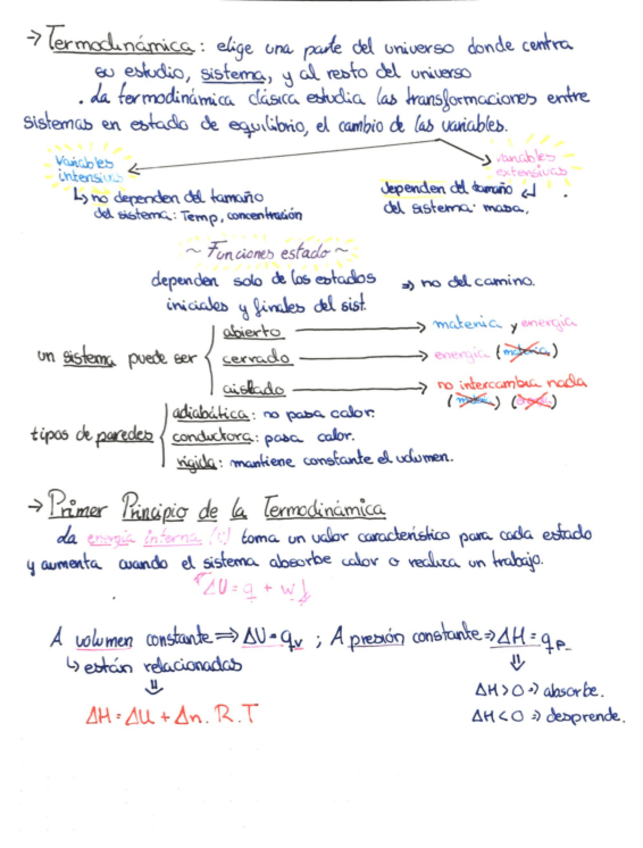 → Termodinámica: elige una parte del universo donde centra
su estudio, sistema, y al resto del universo
. La termodinámica clásica estudia las transformaciones entre
sistemas en estado de equilibrio, el cambio de las variables.
Variables intensivas
↳ no dependen del tamaño
del sistema: Temp, concentración
variables extensivas
dependen del tamaño ↲
del sistema: masa,
~ Funciones estado ~
dependen solo de los estados ⇒ no del camino.
iniciales y finales del sist.
un sistema puede ser
abierto → materia y energía
cerrado → energía (materia)
aislado → no intercambia nada
(materia) (energía)
tipos de paredes
adiabática: no pasa calor.
conductora: pasa calor.
rígida: mantiene constante el volumen.
→ Primer Principio de la Termodinámica
La energía interna (U) toma un valor característico para cada estado
y aumenta cuando el sistema absorbe calor o realiza un trabajo.
ΔU = q + w
A volumen constante ⇒ ΔU = qv ; A presión constante ⇒ ΔH = qp
↳ están relacionadas
⇓
ΔH = ΔU + Δn. R. T
⇓
ΔH > 0 ⇒ absorbe.
ΔH < 0 ⇒ desprende.